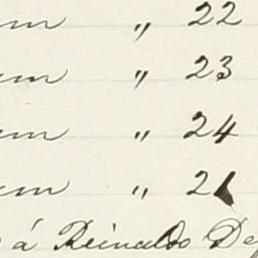 um " 22
um " 23
um " 24
um " 2
á Reinaldo De